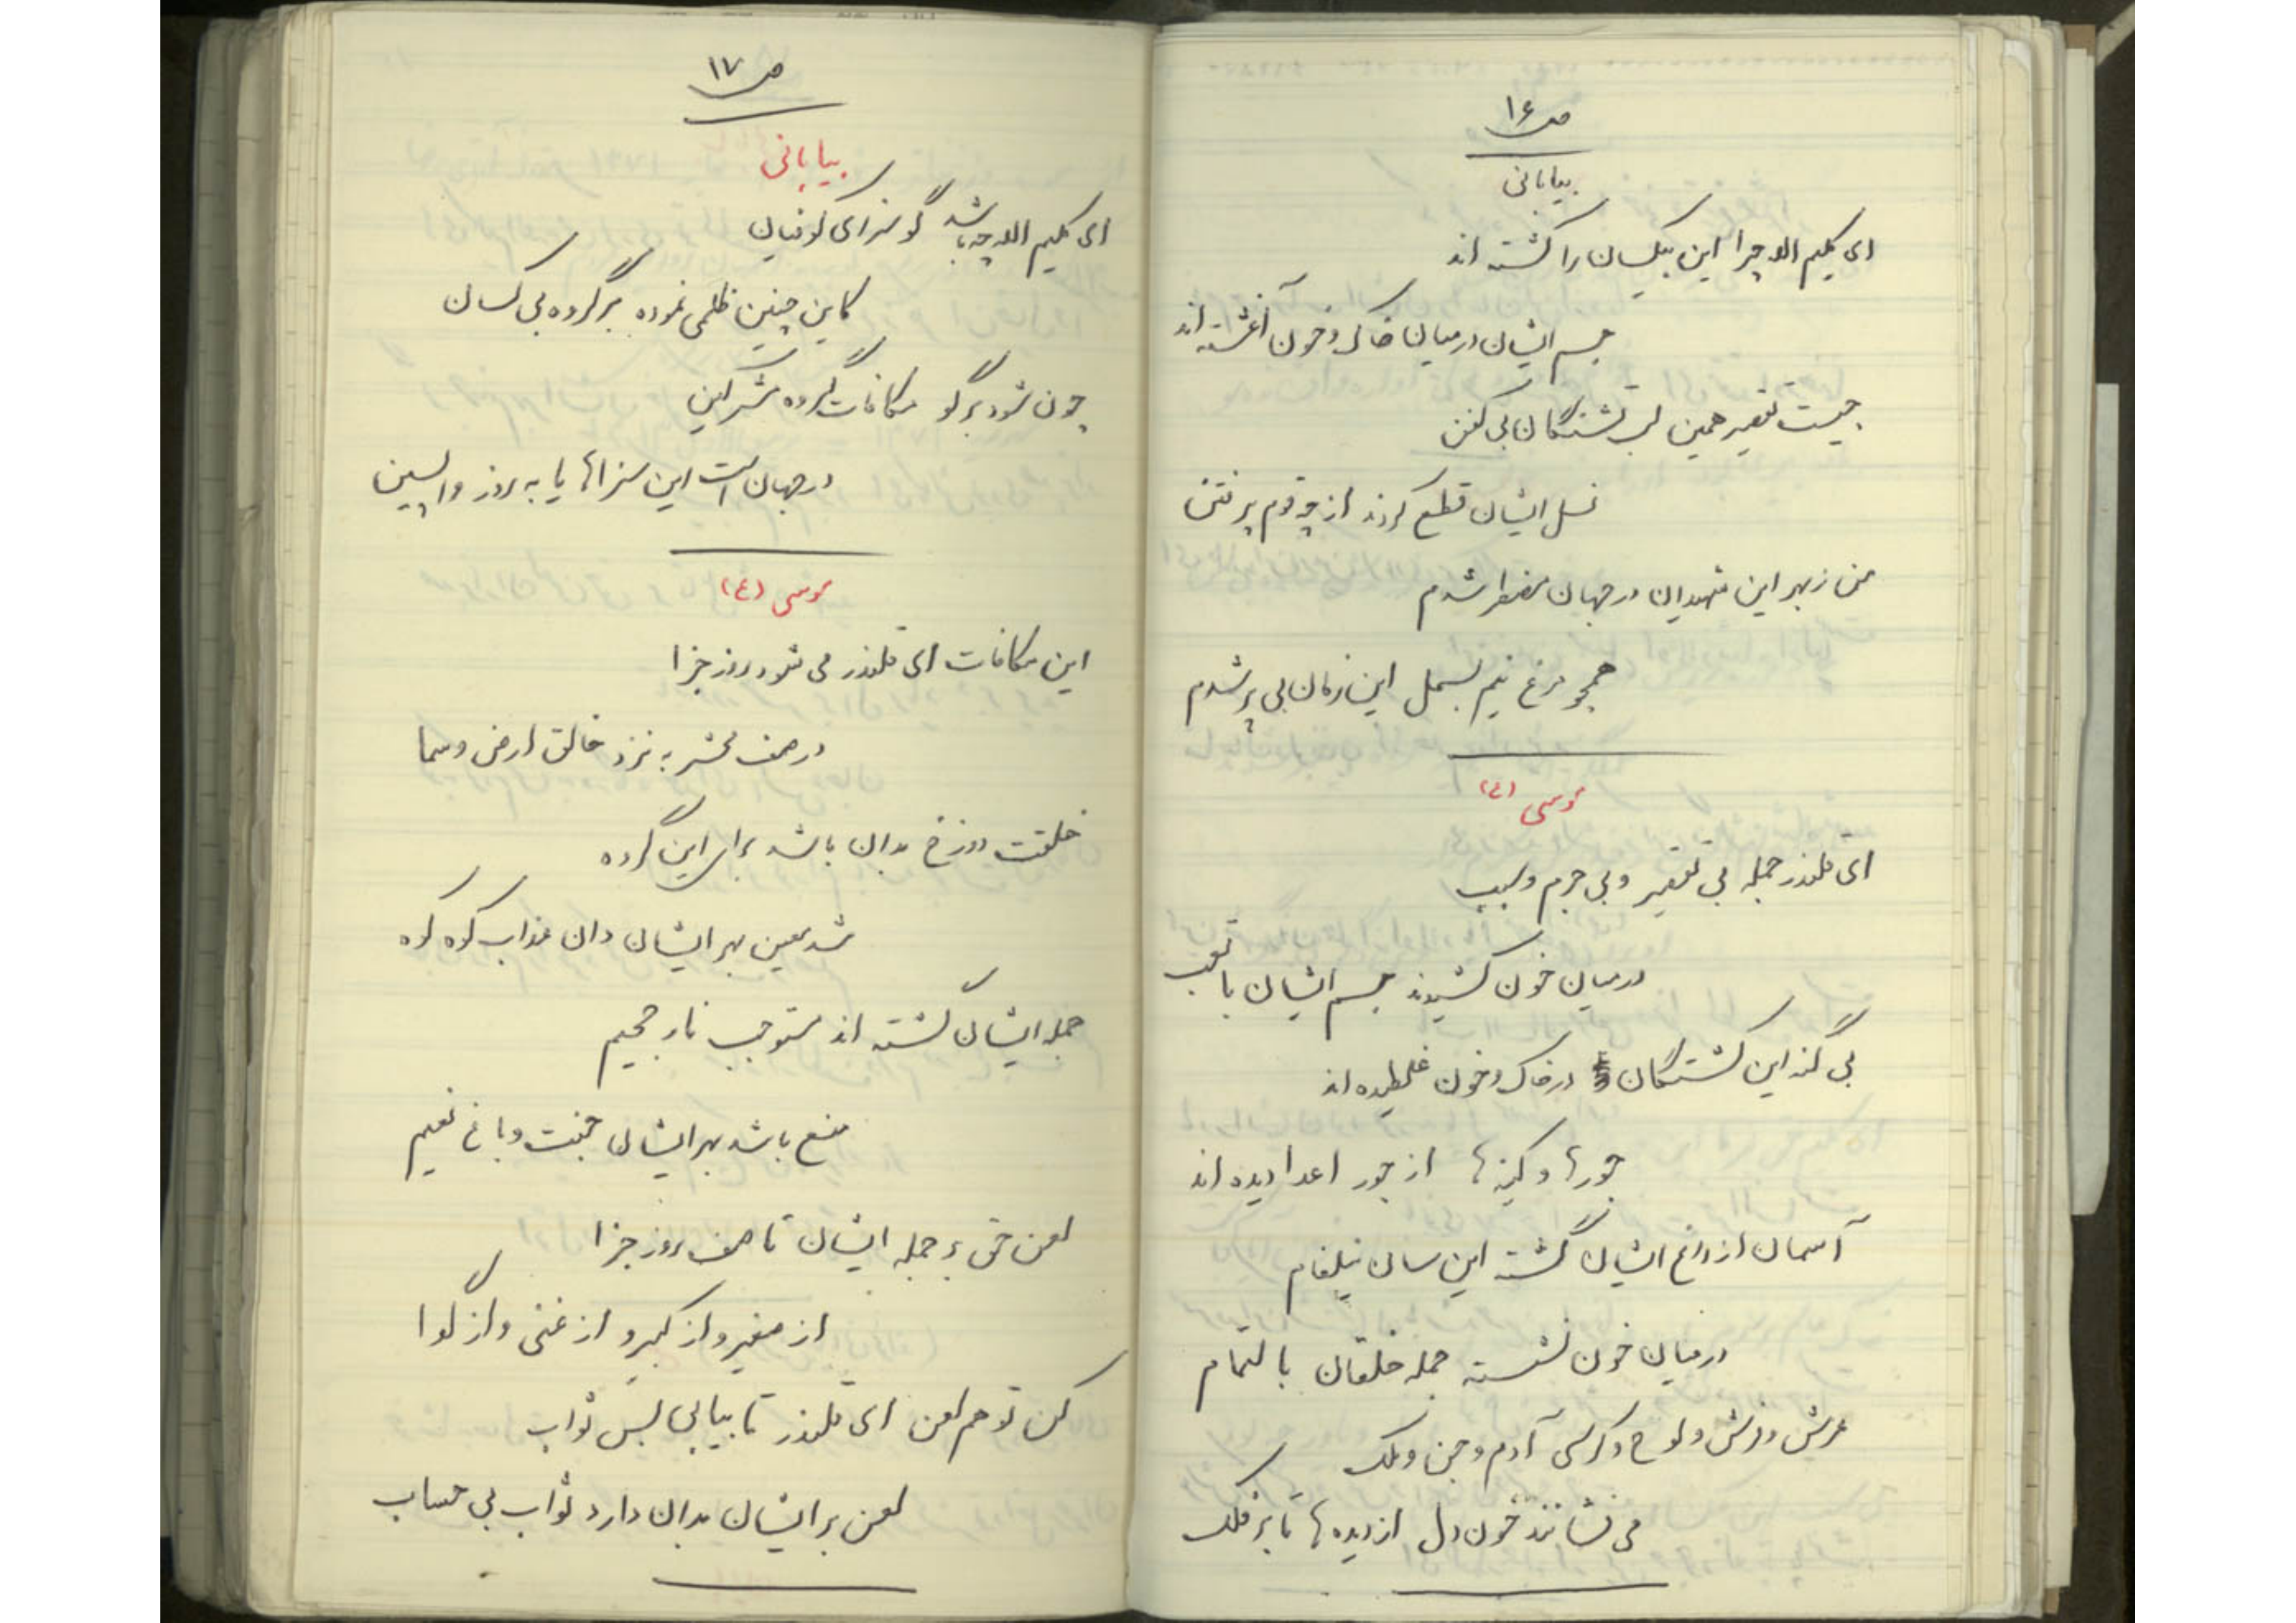 ص ۱۶
بیابانی
ای کلیم الله چرا این بیکسان را کشته اند
جسم ایشان در میان خاک و خون آغشته اند
چیست تقصیر همین لب تشنگان بی کفن
نسل ایشان قطع کردند از چه قوم پر فتن
من ز بهر این شهیدان در جهان مضطر شدم
همچو مرغ نیم بسمل این زمان بی پر شدم
موسی (ع)
ای قلندر جمله بی تقصیر و بی جرم و سبب
در میان خون کشیدند جسم ایشان با تعب
بی گنه این کشتگان در خاک و خون غلطیده اند
جورها و کینه ها از جور اعدا دیده اند
آسمان از داغ ایشان گشته این سان نیلفام
در میان خون نشسته جمله خلقان بالتمام
عرش و فرش و لوح و کرسی آدم و جن و ملک
می فشانند خون دل از دیده ها تا بر فلک
ص ۱۷
بیابانی
ای کلیم الله چه باشد گو سزای کوفیان
کاین چنین ظلمی نموده بر گروه بی کسان
چون شود برگو مکافات گروه مشرکین
در جهان است این سزاها یا به روز واپسین
موسی (ع)
این مکافات ای قلندر می شود روز جزا
در صف محشر به نزد خالق ارض و سما
خلقت دوزخ بدان باشد برای این گروه
شد معین بهر ایشان دان عذاب کوه کوه
جمله ایشان گشته اند مستوجب نار جحیم
منع باشد بهر ایشان جنت و باغ نعیم
لعن حق بر جمله ایشان تا صف روز جزا
از صغیر و از کبیر و از غنی و از گدا
کن تو هم لعن ای قلندر تا بیابی بس ثواب
لعن بر ایشان بدان دارد ثواب بی حساب